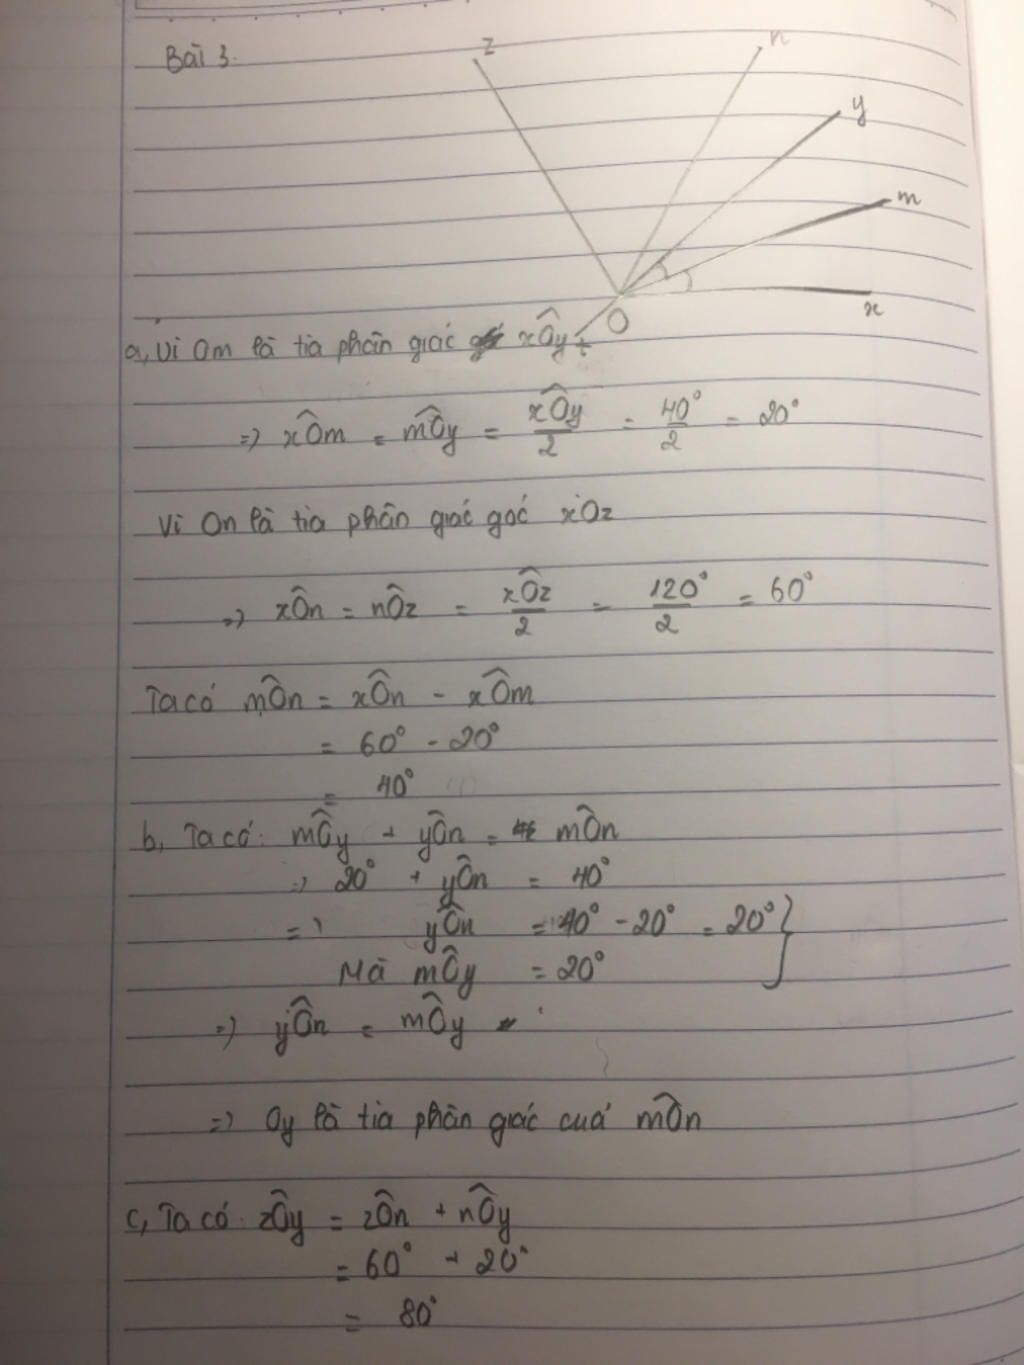 Bài 3.
z
n
y
m
x
O
a, Vì Om là tia phân giác xÔy
=> xÔm = mÔy = xÔy/2 = 40°/2 = 20°
Vì On là tia phân giác góc xOz
=> xÔn = nÔz = xÔz/2 = 120°/2 = 60°
Ta có mÔn = xÔn - xÔm
= 60° - 20°
= 40°
b, Ta có: mÔy + yÔn = mÔn
=> 20° + yÔn = 40°
=> yÔn = 40° - 20° = 20° }
Mà mÔy = 20°
=> yÔn = mÔy
=> Oy là tia phân giác cuả mÔn
c, Ta có: zÔy = zÔn + nÔy
= 60° + 20°
= 80°